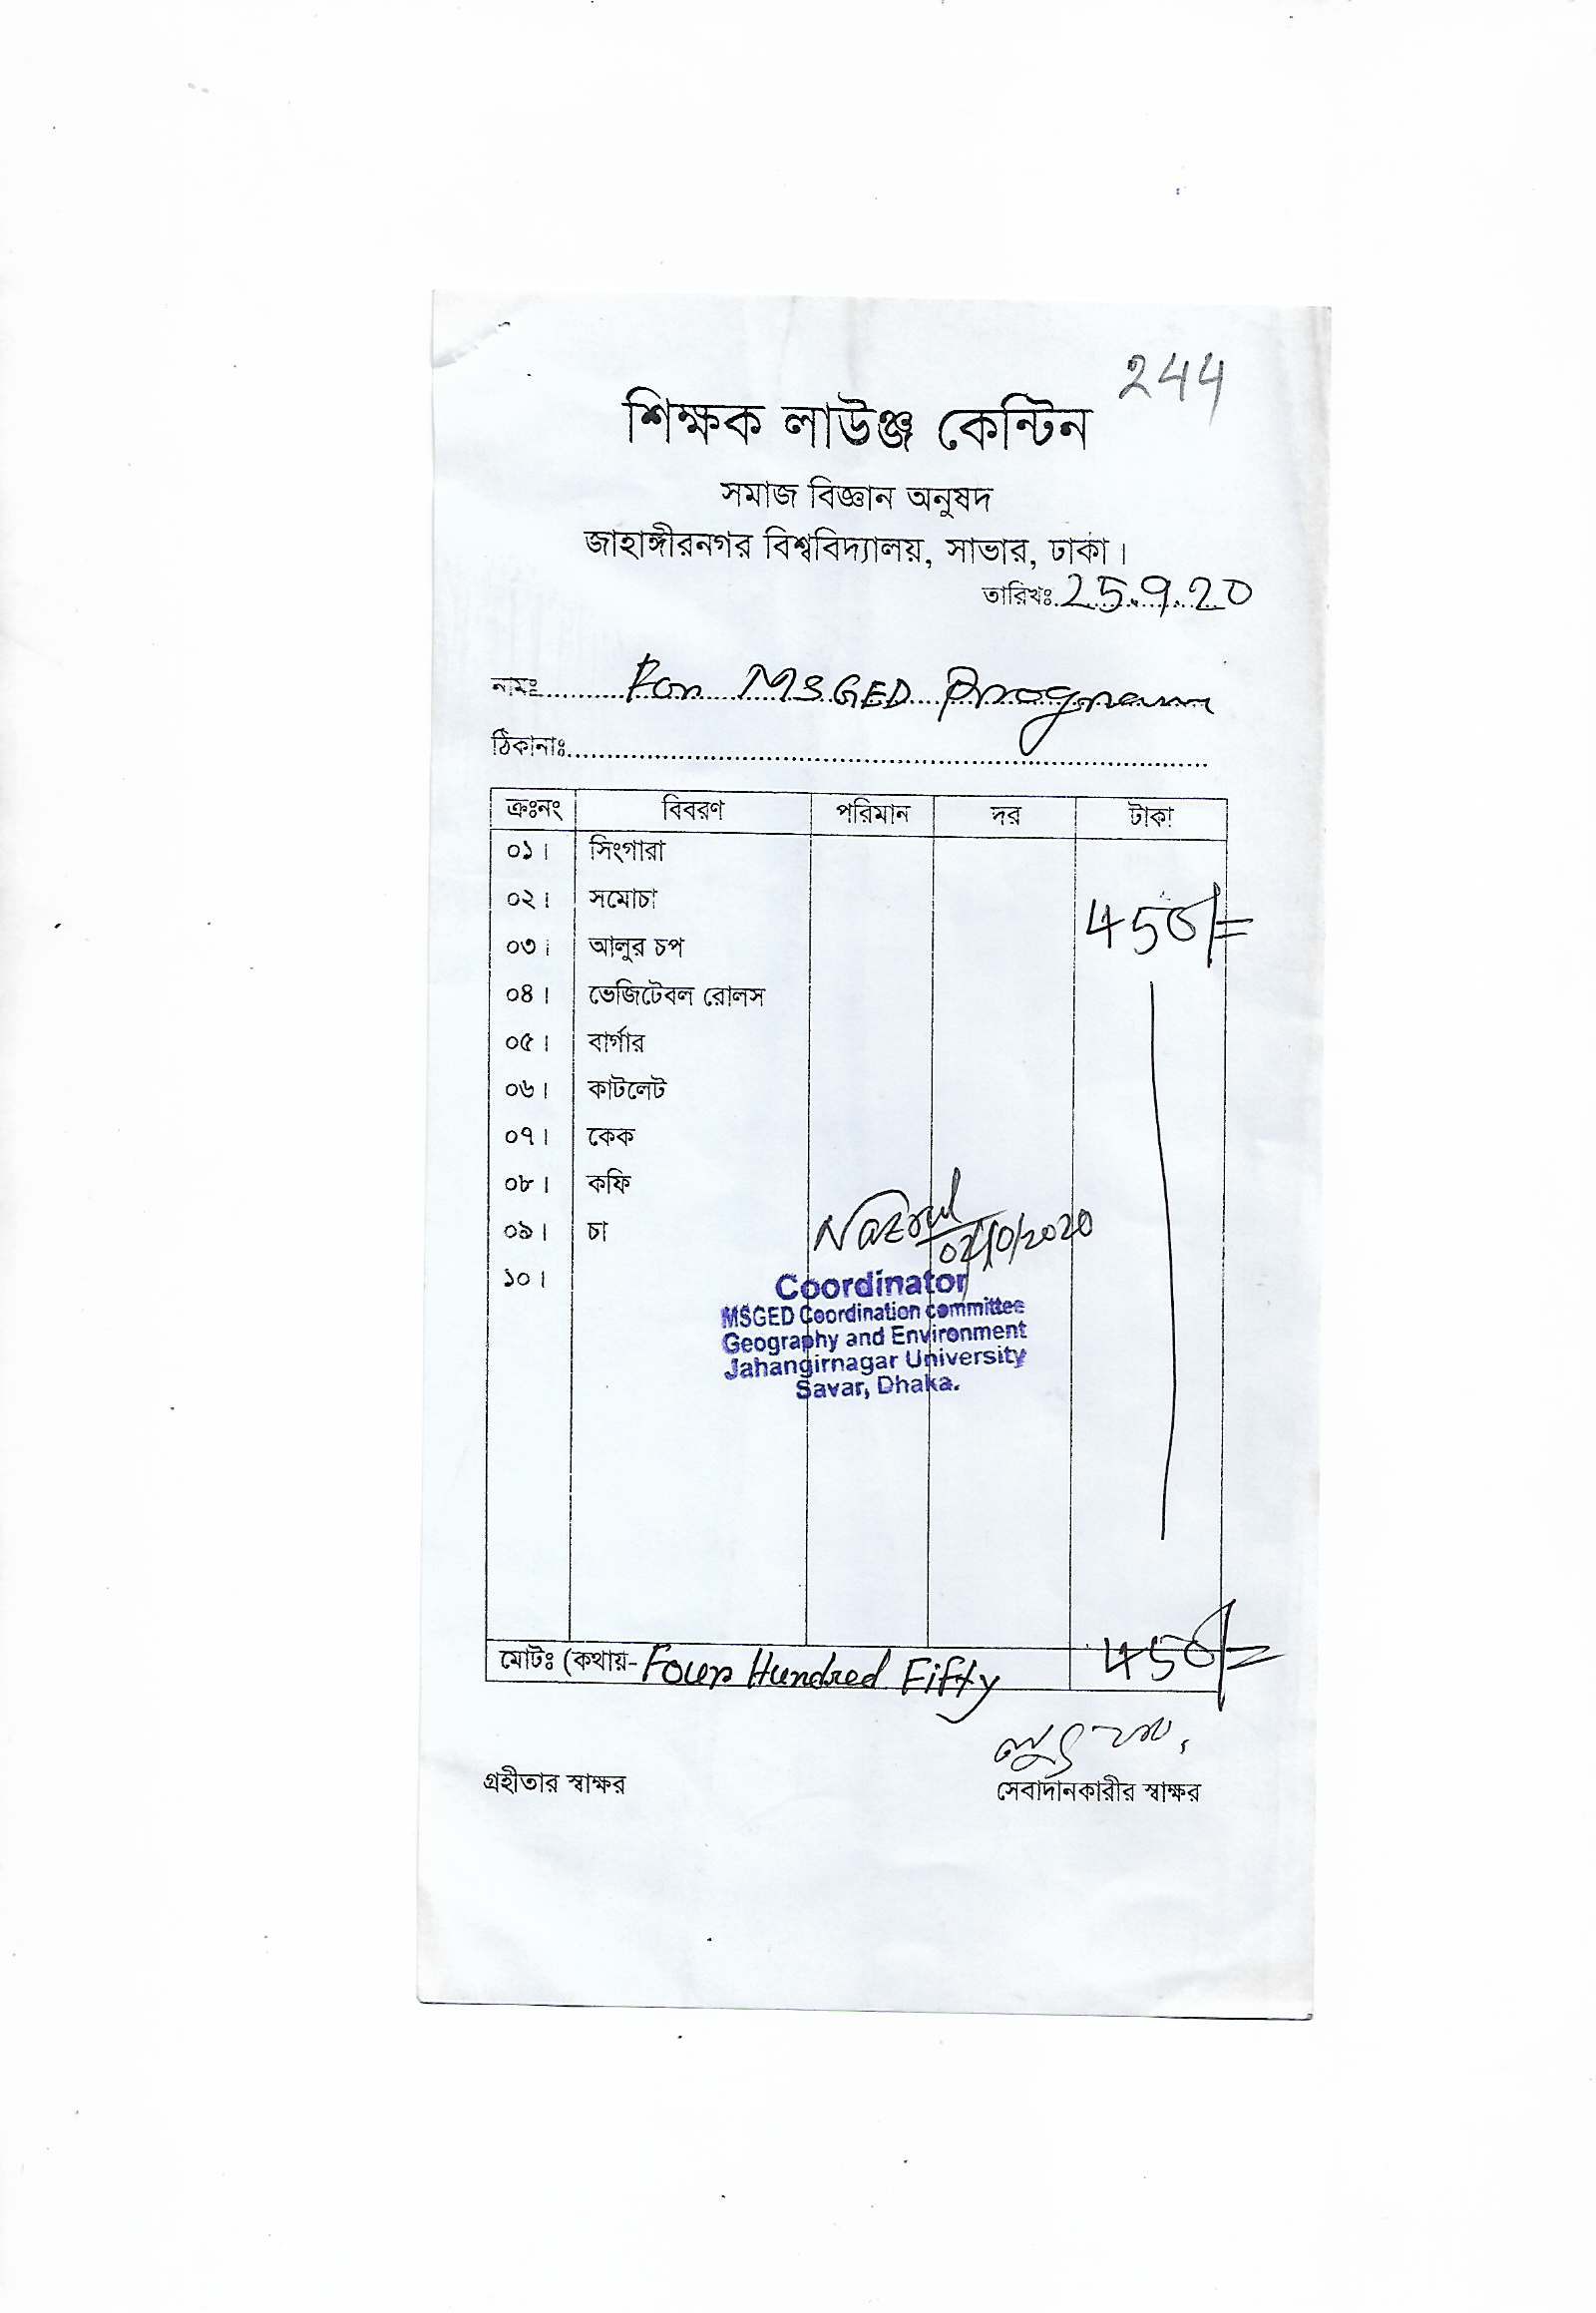 244
শিক্ষক লাউঞ্জ কেন্টিন
সমাজ বিজ্ঞান অনুষদ
জাহাঙ্গীরনগর বিশ্ববিদ্যালয়, সাভার, ঢাকা।
তারিখঃ 25.9.20
নামঃ For MSGED Program
ঠিকানাঃ
ক্রঃনং বিবরণ পরিমান দর টাকা
০১। সিংগারা
০২। সমোচা 450/=
০৩। আলুর চপ
০৪। ভেজিটেবল রোলস
০৫। বার্গার
০৬। কাটলেট
০৭। কেক
০৮। কফি
০৯। চা Nazrul
১০। /10/2020
Coordinator
MSGED Coordination committee
Geography and Environment
Jahangirnagar University
Savar, Dhaka.
মোটঃ (কথায়- Four Hundred Fifty 450/=
গ্রহীতার স্বাক্ষর সেবাদানকারীর স্বাক্ষর